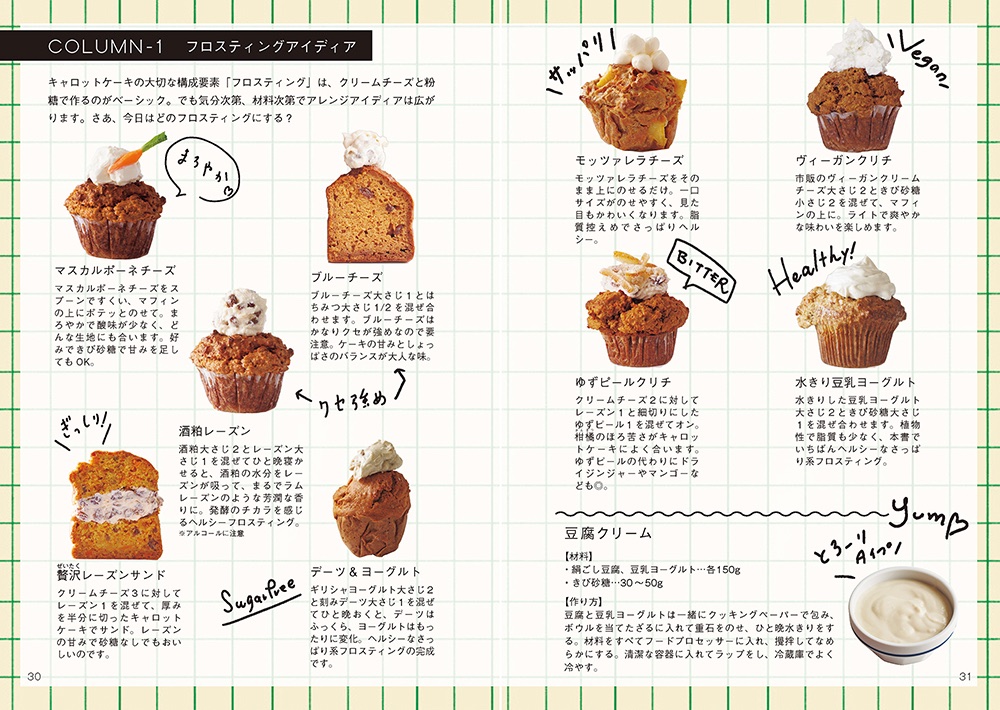 COLUMN-1 フロスティングアイディア
キャロットケーキの大切な構成要素「フロスティング」は、クリームチーズと粉
糖で作るのがベーシック。でも気分次第、材料次第でアレンジアイディアは広が
ります。さあ、今日はどのフロスティングにする？
まろやか
マスカルポーネチーズ
マスカルポーネチーズをス
プーンですくい、マフィン
の上にポテッとのせて。ま
ろやかで酸味が少なく、ど
んな生地にも合います。好
みできび砂糖で甘みを足し
てもOK。
ブルーチーズ
ブルーチーズ大さじ1とは
ちみつ大さじ1/2を混ぜ合
わせます。ブルーチーズは
かなりクセが強めなので要
注意。ケーキの甘みとしょっ
ぱさのバランスが大人な味。
クセ強め
酒粕レーズン
酒粕大さじ2とレーズン大
さじ1を混ぜてひと晩寝か
せると、酒粕の水分をレー
ズンが吸って、まるでラム
レーズンのような芳潤な香
りに。発酵のチカラを感じ
るヘルシーフロスティング。
※アルコールに注意
ぎっしり!
ぜいたく
贅沢レーズンサンド
クリームチーズ3に対して
レーズン1を混ぜて、厚み
を半分に切ったキャロット
ケーキでサンド。レーズン
の甘みで砂糖なしでもおい
しいのです。
Sugarfree
デーツ＆ヨーグルト
ギリシャヨーグルト大さじ2
と刻みデーツ大さじ1を混ぜ
てひと晩おくと、デーツは
ふっくら、ヨーグルトはもっ
たりに変化。ヘルシーなさっ
ぱり系フロスティングの完成
です。
30
サッパリ!
モッツァレラチーズ
モッツァレラチーズをその
まま上にのせるだけ。一口
サイズがのせやすく、見た
目もかわいくなります。脂
質控えめでさっぱりヘル
シー。
Vegan
ヴィーガンクリチ
市販のヴィーガンクリーム
チーズ大さじ2ときび砂糖
小さじ2を混ぜて、マフィ
ンの上に。ライトで爽やか
な味わいを楽しめます。
BITTER
ゆずピールクリチ
クリームチーズ2に対して
レーズン1と細切りにした
ゆずピール1を混ぜてオン。
柑橘のほろ苦さがキャロッ
トケーキによく合います。
ゆずピールの代わりにドラ
イジンジャーやマンゴーな
ども◎。
Healthy!
水きり豆乳ヨーグルト
水きりした豆乳ヨーグルト
大さじ2ときび砂糖大さじ
1を混ぜ合わせます。植物
性で脂質も少なく、本書で
いちばんヘルシーなさっぱ
り系フロスティング。
yum
豆腐クリーム
とろーり
【材料】
・絹ごし豆腐、豆乳ヨーグルト…各150g
・きび砂糖…30〜50g
【作り方】
豆腐と豆乳ヨーグルトは一緒にクッキングペーパーで包み、
ボウルを当てたざるに入れて重石をのせ、ひと晩水きりをす
る。材料をすべてフードプロセッサーに入れ、攪拌してなめ
らかにする。清潔な容器に入れてラップをし、冷蔵庫でよく
冷やす。
31